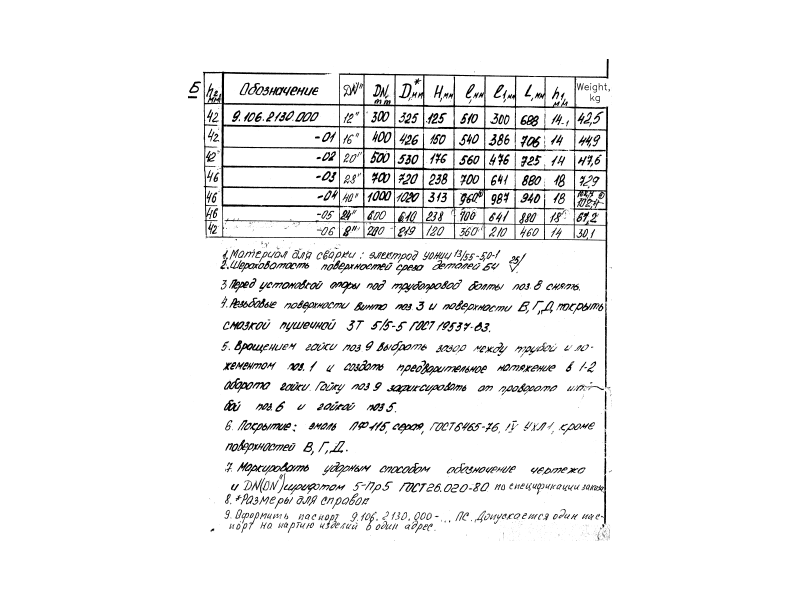 Б
h2 мм Обозначение DN" DN, mm D,* мм H, мм l, мм l1, мм L, мм h1, мм Weight, kg
42 9.106.2130.000 12" 300 325 125 510 300 688 14 42,5
42 -01 16" 400 426 150 540 386 706 14 44,9
42 -02 20" 500 530 176 560 476 725 14 47,6
46 -03 28" 700 720 238 700 641 880 18 72,9
46 -04 40" 1000 1020 313 960 987 940 18
46 -05 24" 600 610 238 700 641 880 18 67,2
42 -06 8" 200 219 120 360 210 460 14 30,1
1. Материал для сварки: электрод УОНИИ 13/55-5,0-1
2. Шероховатость поверхностей среза деталей БЧ 25/
3. Перед установкой опоры под трубопровод болты поз. 8 снять.
4. Резьбовые поверхности винта поз 3 и поверхности В, Г, Д, покрыть
смазкой пушечной 3Т 5/5-5 ГОСТ 19537-83.
5. Вращением гайки поз 9 выбрать зазор между трубой и ло-
жементом поз. 1 и создать предварительное натяжение в 1-2
оборота гайки. Гайку поз 9 зафиксировать от проворота шай-
бой поз. 6 и гайкой поз 5.
6. Покрытие: эмаль ПФ115, серая, ГОСТ 6465-76, IV УХЛ1, кроме
поверхностей В, Г, Д.
7. Маркировать ударным способом обозначение чертежа
и DN(DN") шрифтом 5-Пр5 ГОСТ 26.020-80 по спецификации заказа
8. *Размеры для справок
9. Оформить паспорт 9.106.2130.000-... ПС. Допускается один пас-
порт на партию изделий в один адрес.